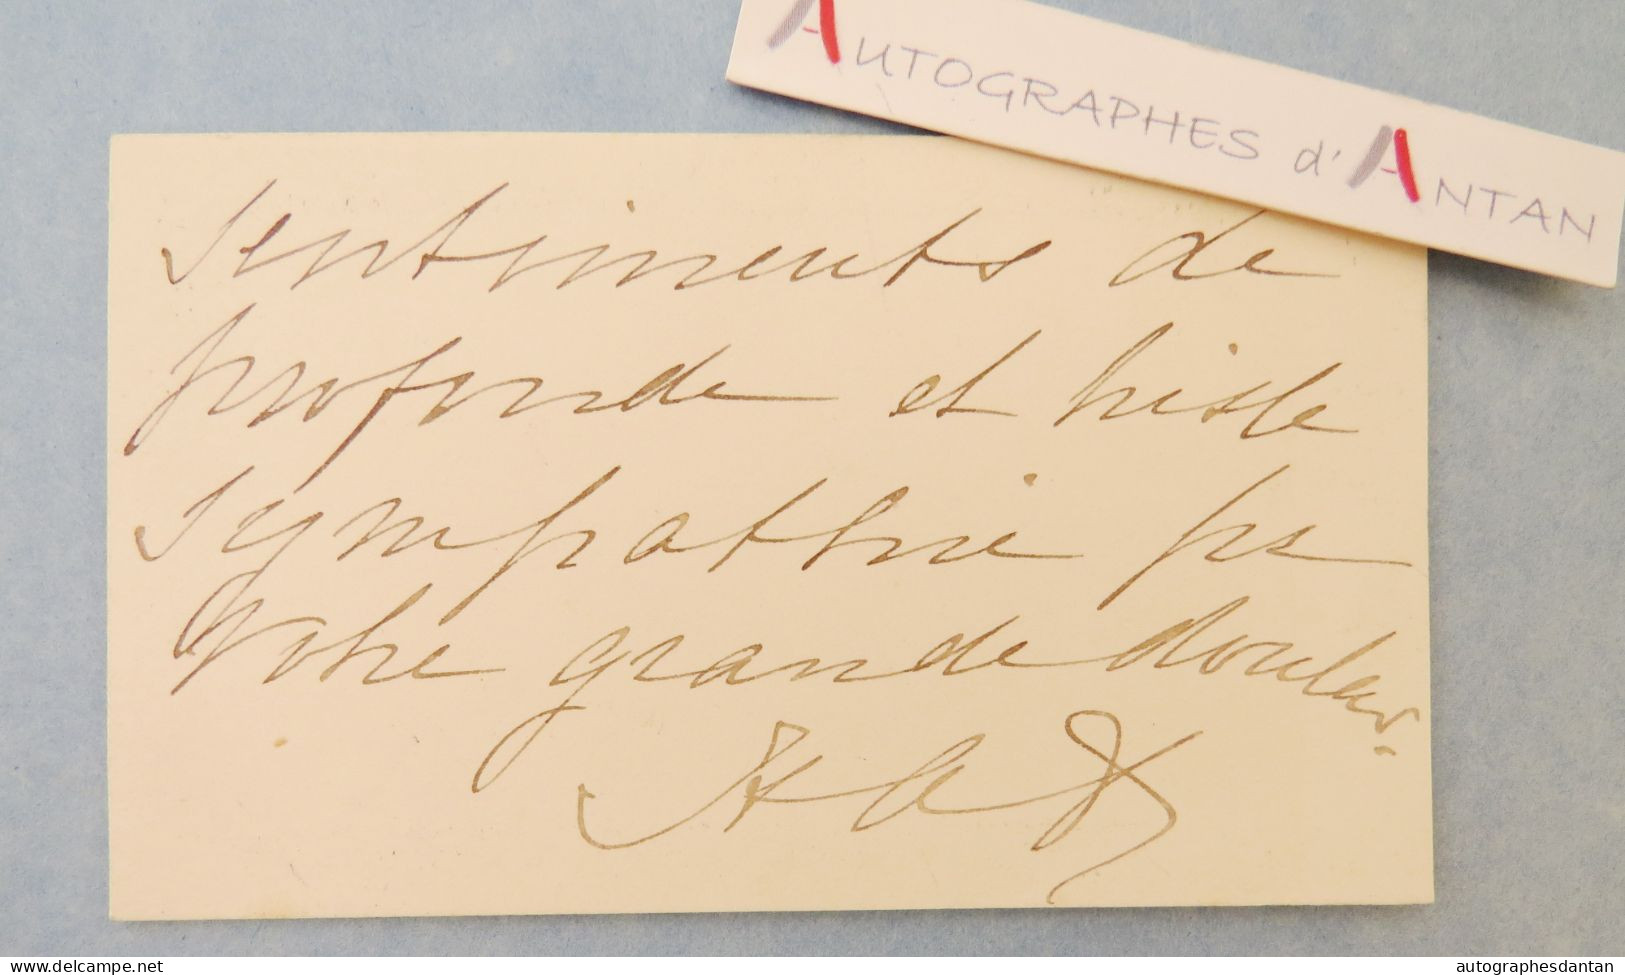 AUTOGRAPHES d'ANTAN
Sentiments de
profonde et triste
sympathie pr
votre grande douleur.
delcampe.net
autographesdantan